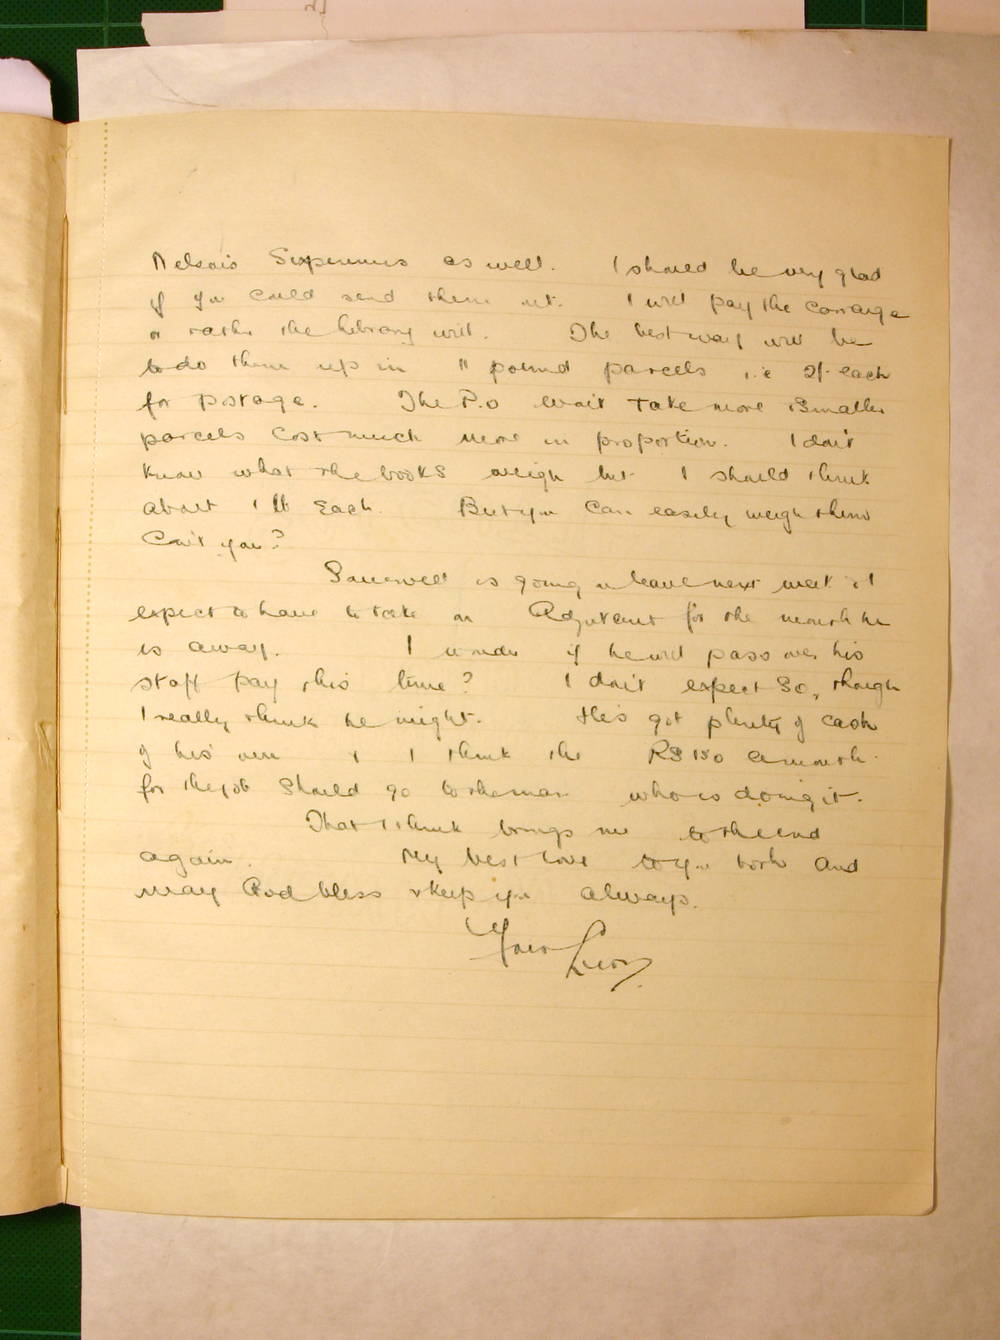 Nelson's Sixpennies as well. I should be very glad
if you could send them out. I will pay the carraige
or rather the library will. The best way will be
to do them up in 11 pound parcels i.e 2/- each
for postage. The P.O won't take more & smaller
parcels cost much more in proportion. I don't
know what the books weigh but I should think
about 1 lb each. But you can easily weigh them
Can't you?
is going on leave next week & I
expect to have to take on Adjutant for the month he
is away. I wonder if he will pass over his
staff pay this time? I don't expect so, though
I really think he might. He's got plenty of cash
of his own & I think the RS 150 a month
for the job should go to the man who is doing it.
That I think brings me to the end
again. My best love to you both and
may God bless & keep you always.
Your Loving